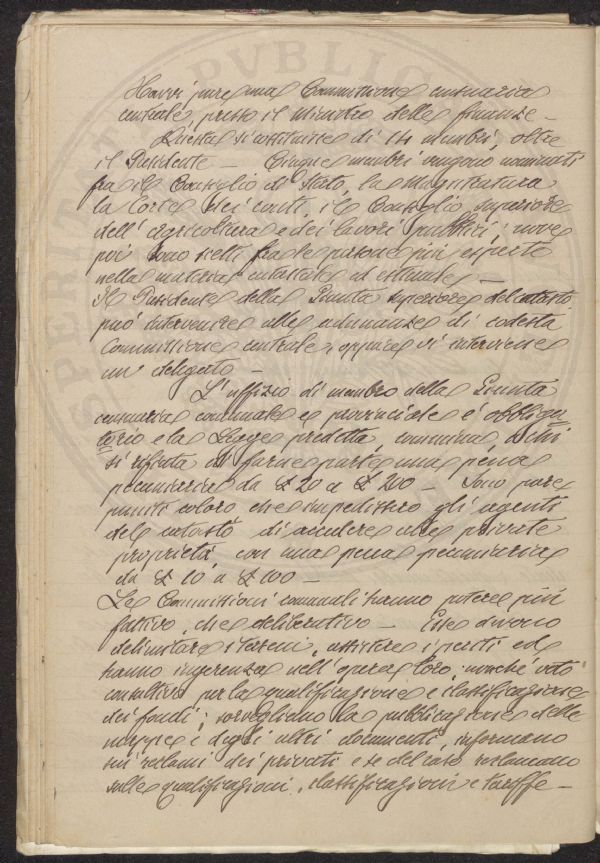 Havvi pure una Commissione censuaria
centrale, presso il Ministro delle finanze –
Questa si costituisce di 14 membri, oltre
il Presidente – Cinque membri vengono nominati
fra il Consiglio di Stato, la Magistratura
la Corte dei conti, il Consiglio superiore
dell'agricoltura e dei lavori pubblici; nove
poi sono scelti fra le persone più esperte
nella materia catastale ed estimale –
Il Presidente della Giunta superiore del catasto
può intervenire alle adunanze di codesta
Commissione centrale, oppure vi interviene
un delegato –
L'uffizio di membro della Giunta
censuaria comunale e provinciale è obbliga
torio e la Legge predetta, commina, a chi
si rifiuta di farne parte una pena
pecuniaria da £ 20 a £ 200 – Sono pure
puniti coloro che impedissero gli agenti
del catasto di accedere alle private
proprietà, con una pena pecuniaria
da £ 10 a £ 100 –
Le Commissioni comunali hanno potere più
fattivo, che deliberativo – Esse devono
delimitare i terreni, assistere i periti ed
hanno ingerenza nell'opera loro, nonché voto
consultivo per la qualificazione e classificazione
dei fondi; sorvegliano la pubblicazione delle
mappe e degli altri documenti, informano
sui reclami dei privati e se del caso reclamano
sulle qualificazioni, classificazioni e tariffe –
PVBLIC